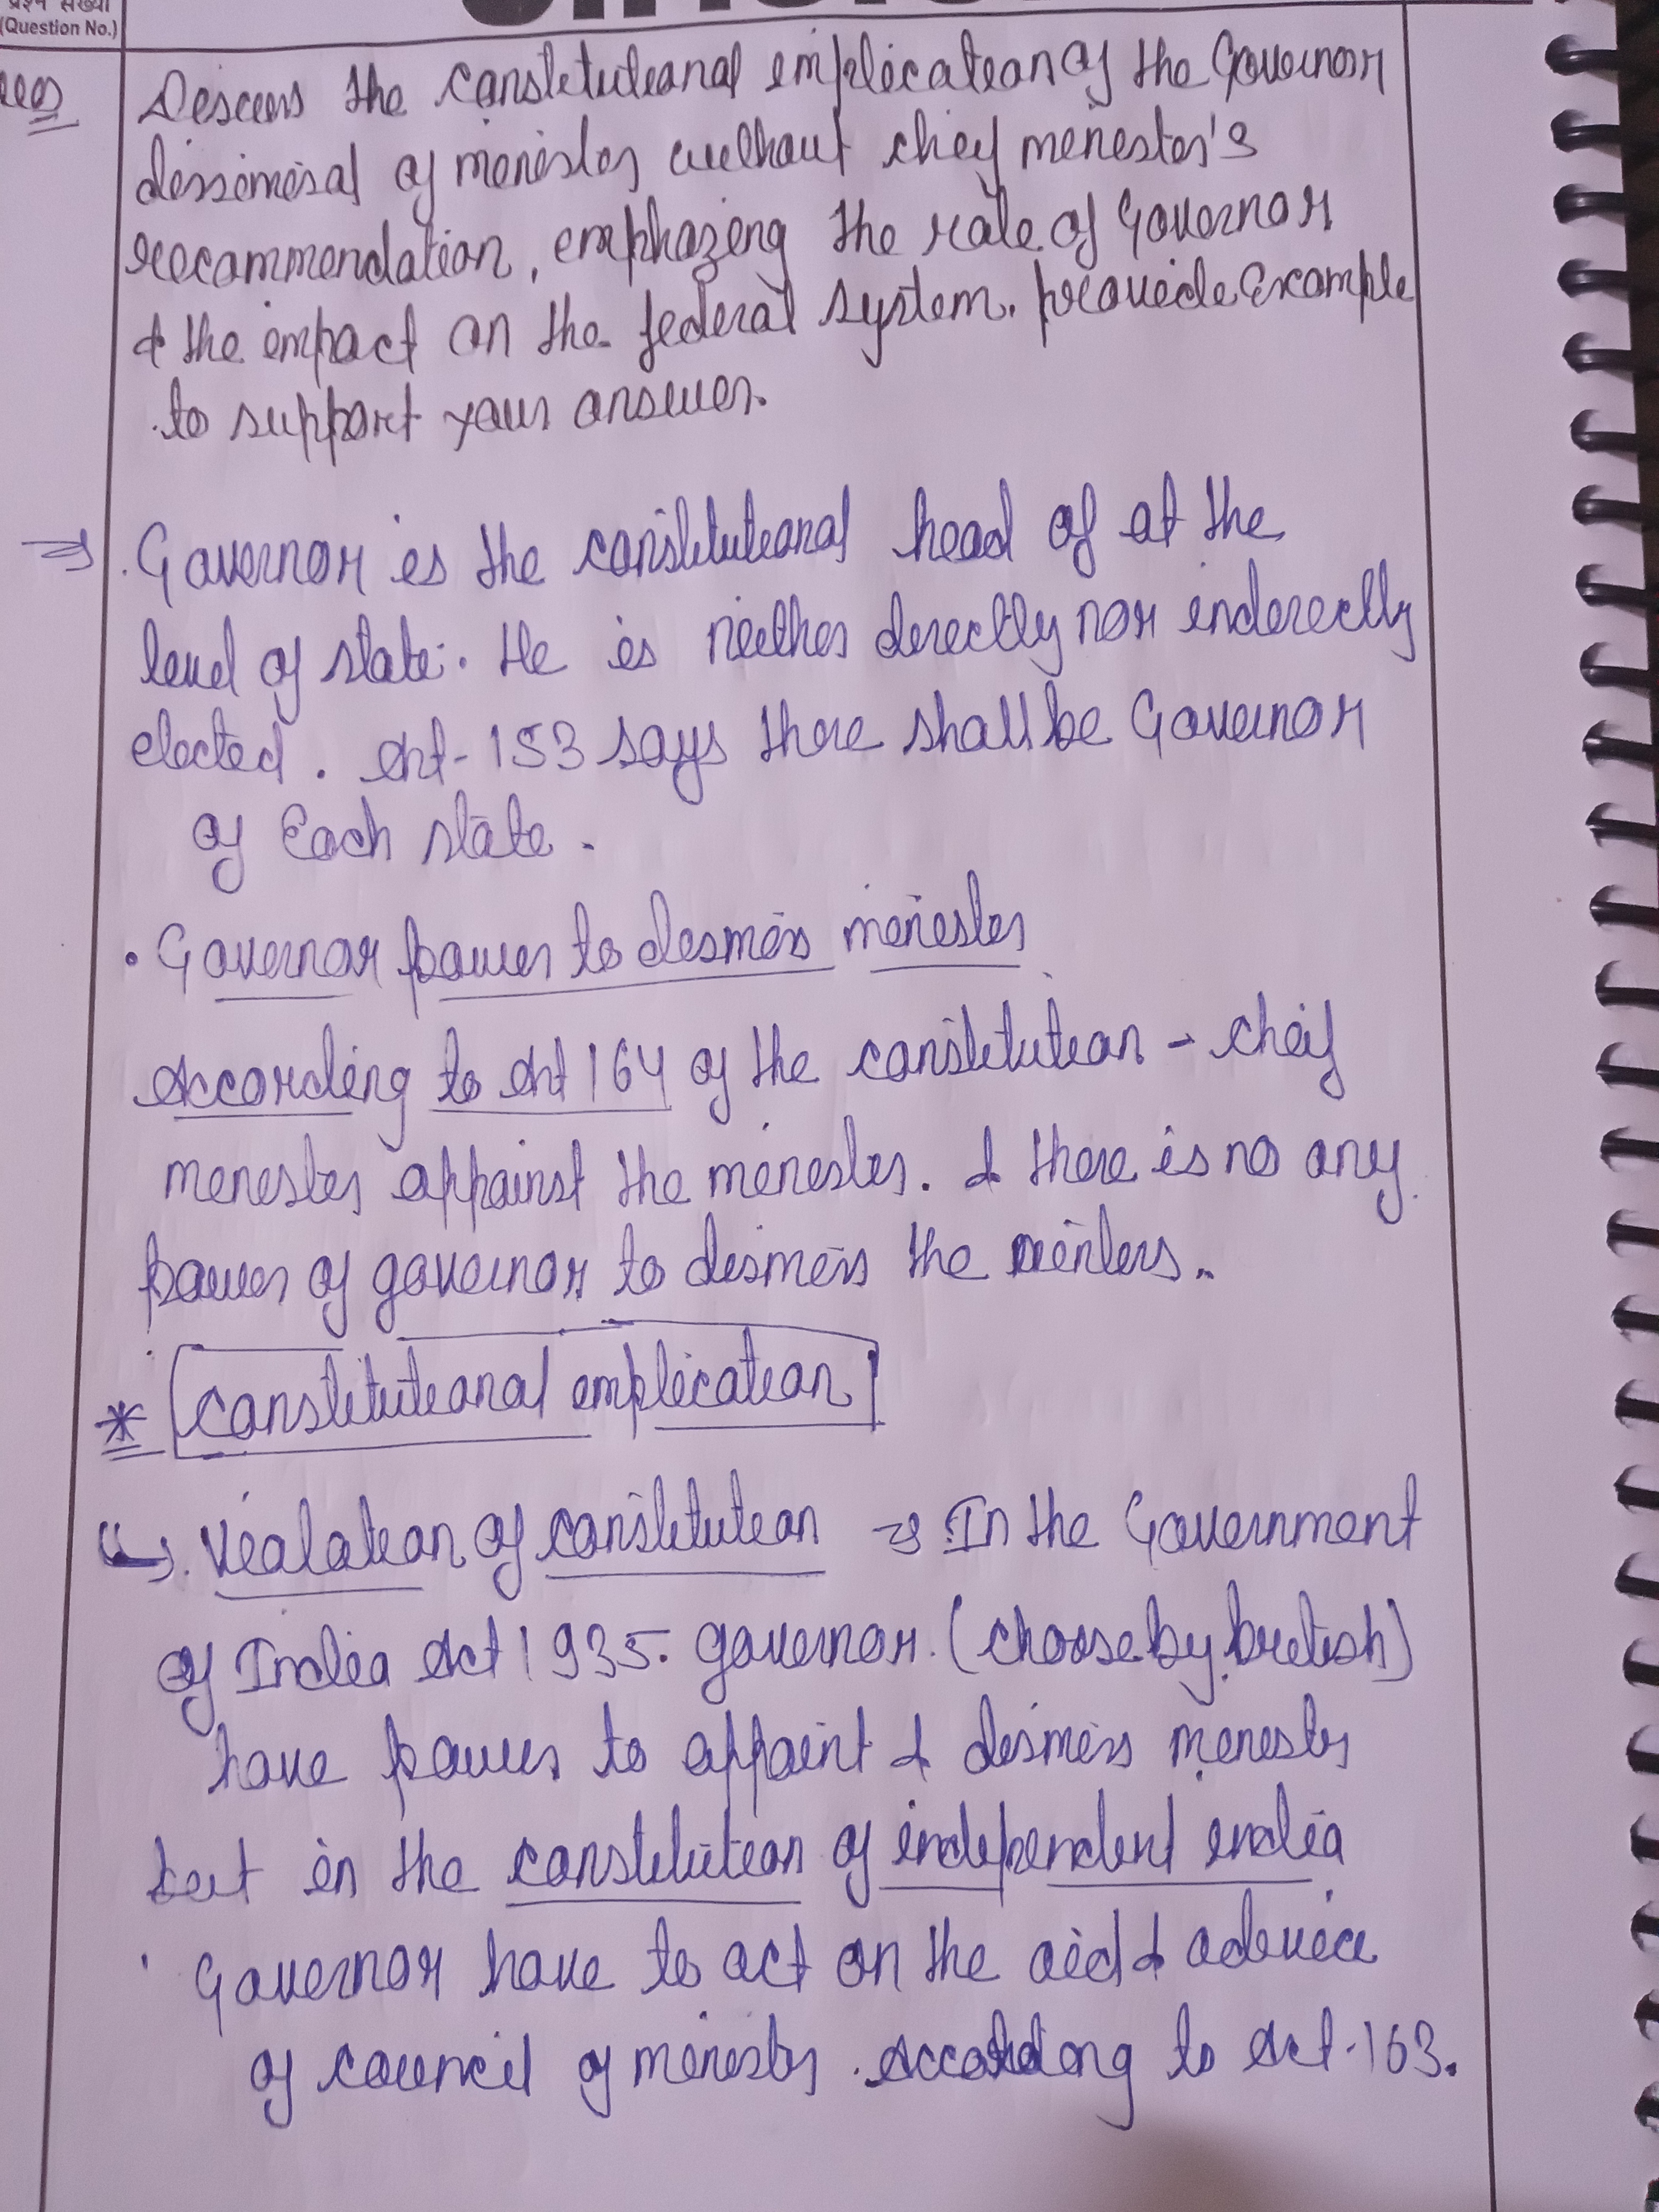 प्रश्न संख्या
(Question No.)
Discuss the constitutional implication of the Governor
dissimisal of minister without chief minister's
recommendation, emphazing the role of Governor
& the impact on the federal system. provide Example
to support your answer.
⇒ Governor is the constitutional head of at the
level of state. He is neither directly nor inderectly
elected. Art-153 says there shall be Governor
of Each state.
• Governor power to dismiss minister
According to Art 164 of the constitution - cheif
minister appoinst the minister. & there is no any
power of governor to dismiss the
* Constitutional implication
↳ Vealation of constitution ⇒ In the Government
of India Act 1935. governor. (choose by british)
have power to appoint & dismiss minister
but in the constitution of independent india
Governor have to act on the aid & advice
of council of minister. According to Act-163.